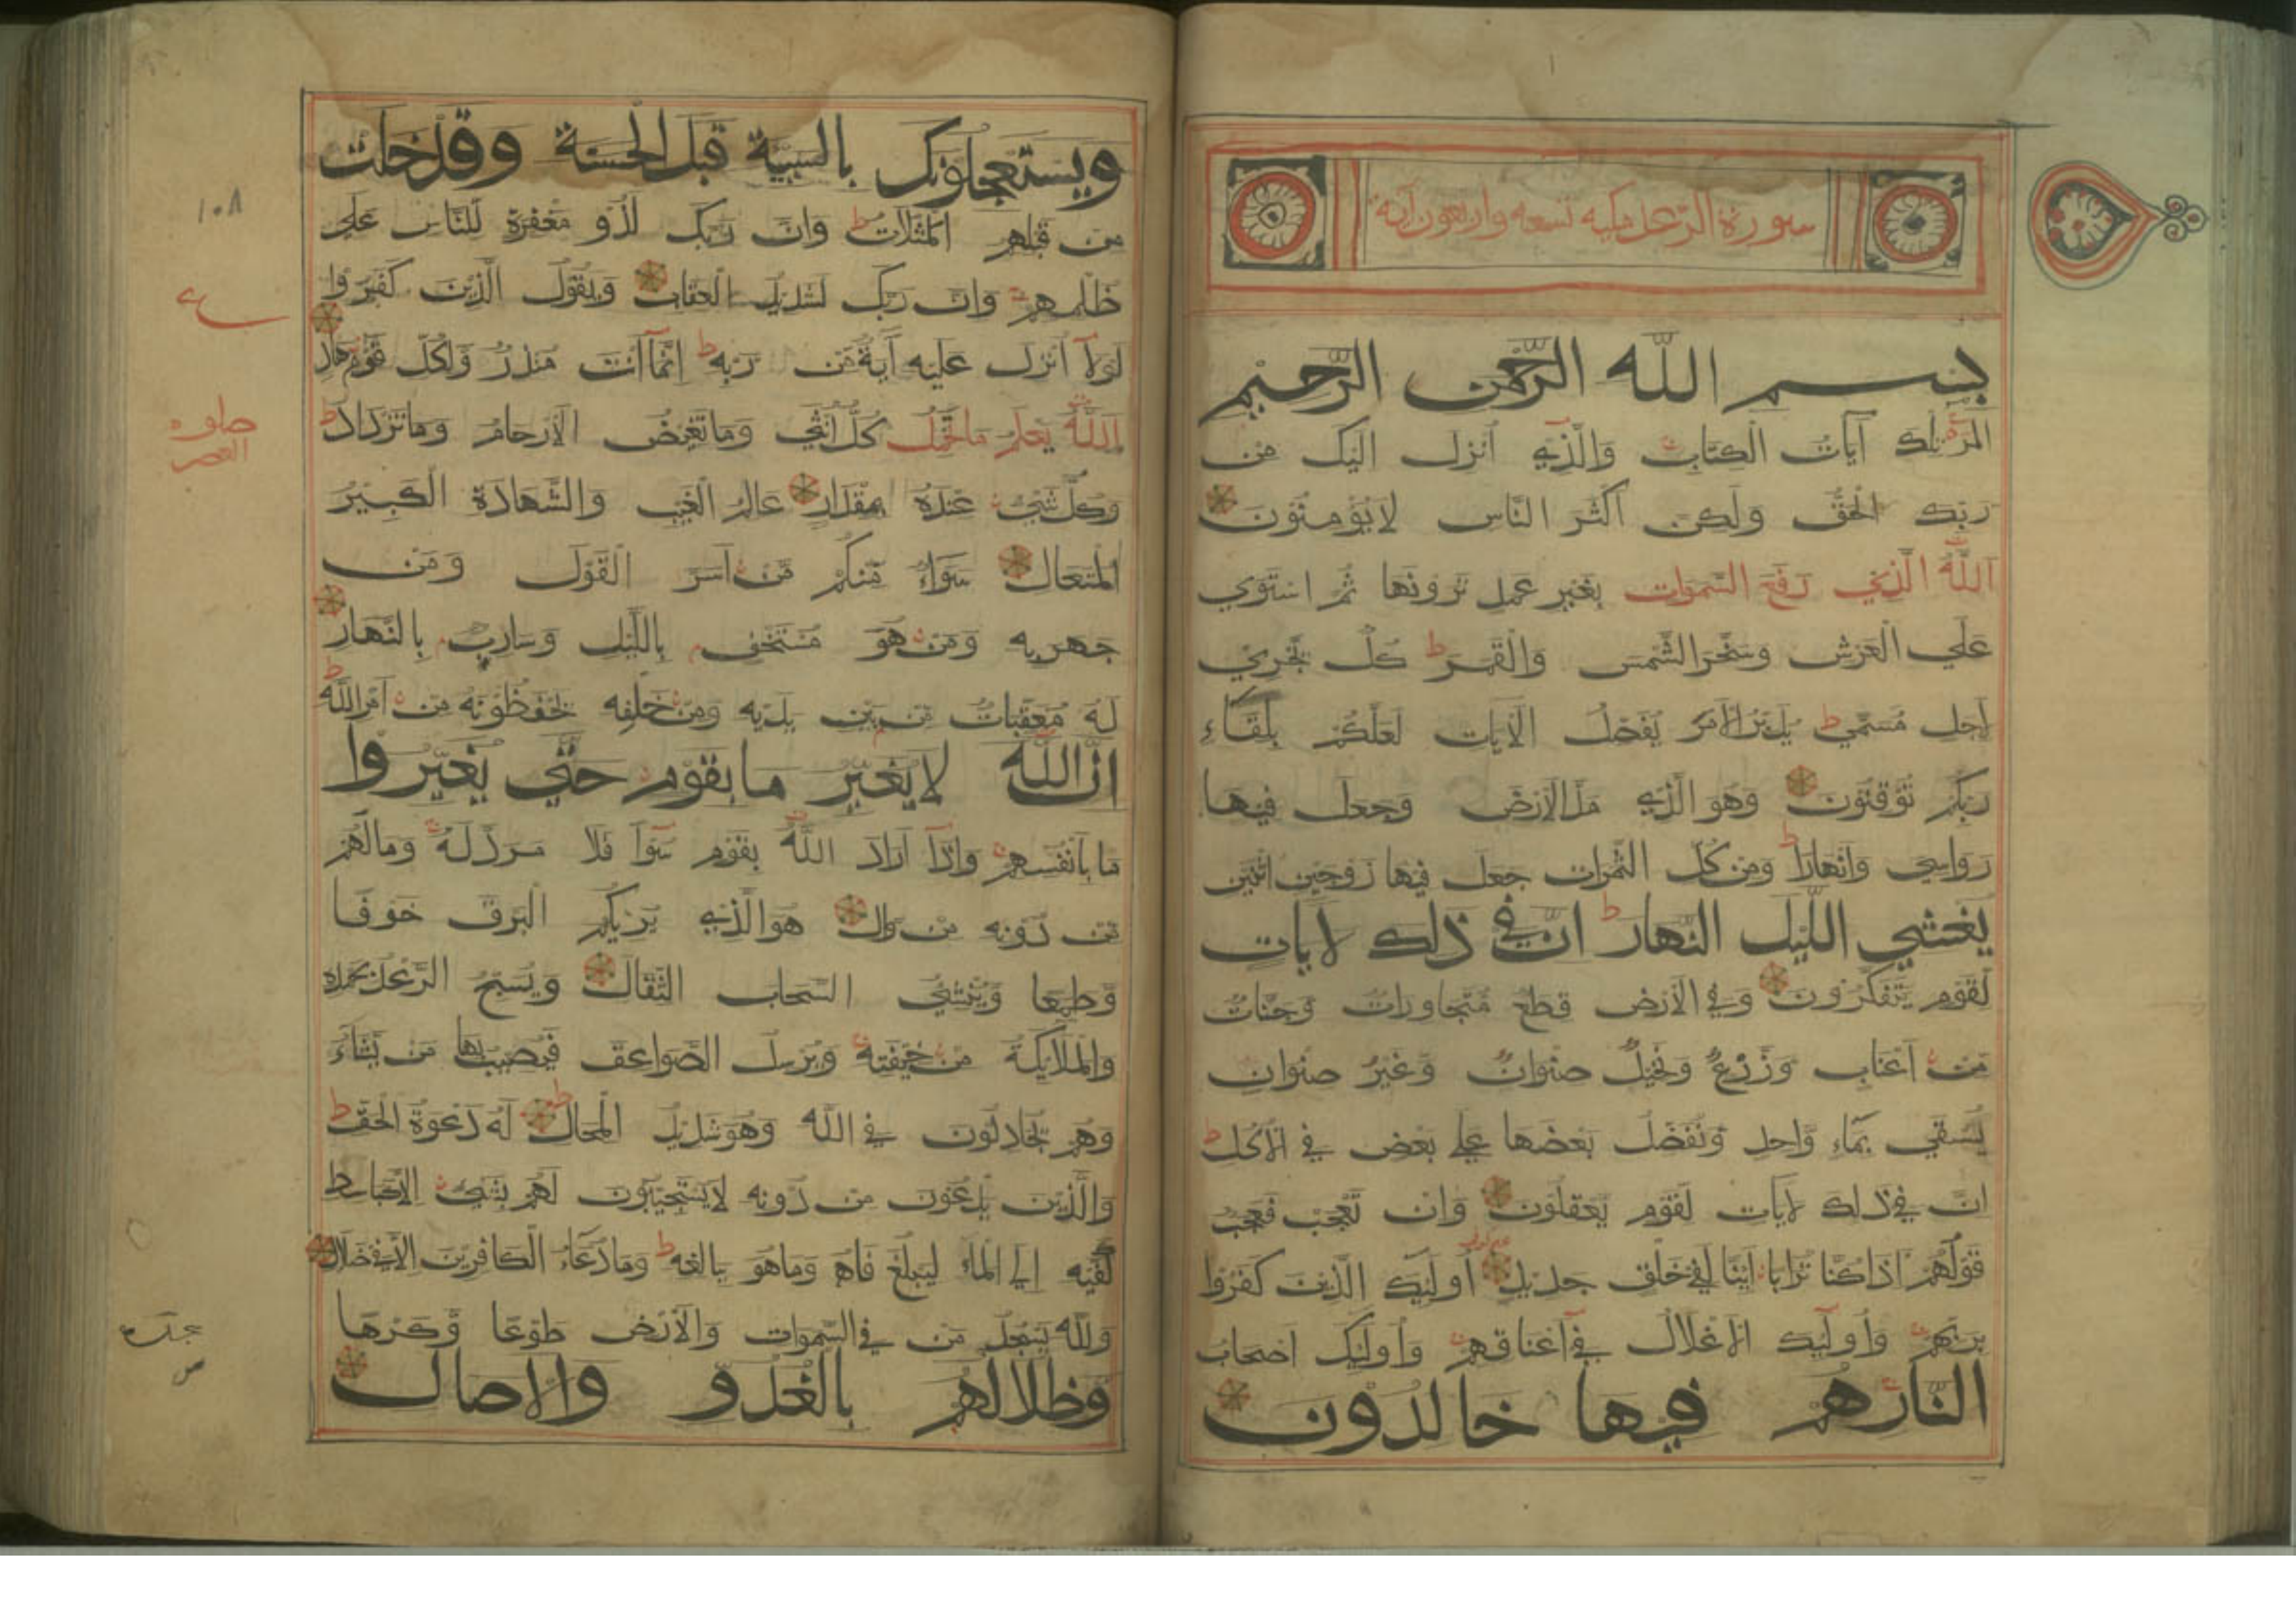 سورة الرعد مكيه تسعه واربعون آية
بسم الله الرحمن الرحيم
المر تلك آيات الكتاب والذي أنزل اليك من
ربك الحق ولكن أكثر الناس لا يؤمنون
الله الذي رفع السموات بغير عمد ترونها ثم استوي
علي العرش وسخر الشمس والقمر ط كل يجري
لأجل مسمي ط يدبر الأمر يفصل الآيات لعلكم بلقاء
ربكم توقنون وهو الذي مد الأرض وجعل فيها
رواسي وانهارا ط ومن كل الثمرات جعل فيها زوجين اثنين
يغشي الليل النهار ط ان في ذلك لآيات
لقوم يتفكرون وفي الأرض قطع متجاورات وجنات
من أعناب وزرع ونخيل صنوان وغير صنوان
يسقي بماء واحد ونفضل بعضها علي بعض في الأكل ط
ان في ذلك لآيات لقوم يعقلون وان تعجب فعجب
قولهم أذا كنا ترابا أينا لفي خلق جديد أوليك الذين كفروا
بربهم وأوليك الأغلال في أعناقهم وأوليك أصحاب
النار هم فيها خالدون
ويستعجلونك بالسيية قبل الحسنة وقد خلت
من قبلهم المثلات ط وان ربك لذو مغفرة للناس علي
ظلمهم وان ربك لشديد العقاب ويقول الذين كفروا
لولا أنزل عليه آية من ربه ط انما أنت منذر ولكل قوم هاد
الله يعلم ما تحمل كل انثي وما تغيض الأرحام وما تزداد ط
وكل شيء عنده بمقدار عالم الغيب والشهادة الكبير
المتعال سواء منكم من أسر القول ومن
جهر به ومن هو مستخف بالليل وسارب بالنهار
له معقبات من بين يديه ومن خلفه يحفظونه من أمر الله ط
ان الله لا يغير ما بقوم حتي يغيروا
ما بأنفسهم واذا أراد الله بقوم سوأ فلا مرد له وما لهم
من دونه من وال هو الذي يريكم البرق خوفا
وطمعا وينشئ السحاب الثقال ويسبح الرعد بحمده
والملايكة من خيفته ويرسل الصواعق فيصيب بها من يشاء
وهم يجادلون في الله وهو شديد المحال ط له دعوة الحق ط
والذين يدعون من دونه لا يستجيبون لهم بشيء الا كباسط
كفيه الي الماء ليبلغ فاه وما هو ببالغه ط وما دعاء الكافرين الا في ضلال
ولله يسجد من في السموات والأرض طوعا وكرها
وظلالهم بالغدو والاصال
١٠٨
صلوه
العصر
سجده